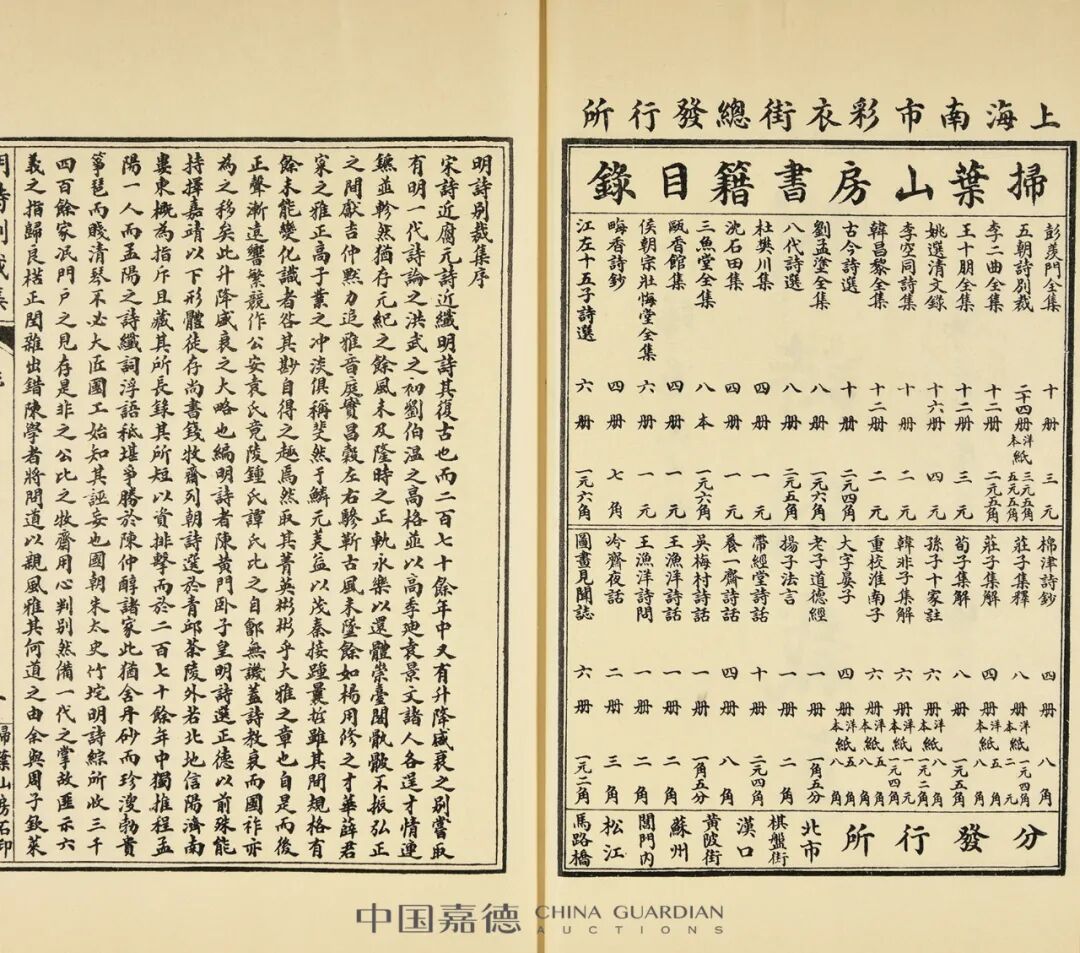 上海南市彩衣街總發行所
掃葉山房書籍目錄
彭羨門全集 十册 三元
五朝詩別裁 二十四册 洋紙本 三元五角 五元五角
李二曲全集 十二册 二元五角
王十朋全集 十二册 三元
姚選清文錄 十六册 四元
李空同詩集 十册 二元
韓昌黎全集 十二册 二元
古今詩選 十册 二元四角
劉孟塗全集 八册 一元六角
八代詩選 八册 二元五角
杜樊川集 四册 一元
沈石田集 四册 一元
三魚堂全集 八本 一元六角
甌香館集 四册 一元
侯朝宗壯悔堂全集 六册 一元
晦香詩鈔 四册 七角
江左十五子詩選 六册 一元六角
棉津詩鈔 四册 八角
莊子集釋 八册 洋紙本 一元四角 二元
莊子集解 四册 五角 八角
荀子集解 八册 一元五角
孫子十家註 六册 洋紙本 八角 一元二角
韓非子集解 六册 洋紙本 一元
重校淮南子 六册 洋紙本 一元四角
大字晏子 四册 洋紙本 五角 八角
老子道德經 二册 一角五分
揚子法言 一册 二角
帶經堂詩話 十册 二元四角
養一齋詩話 四册 八角
吳梅村詩話 一册 一角五分
王漁洋詩話 一册 二角
王漁洋詩問 一册 二角
冷齋夜話 二册 三角
圖畫見聞誌 六册 一元二角
分發行所
北市
棋盤街
漢口
黃陂街
蘇州
閶門內
松江
馬路橋
明詩別裁集序
宋詩近腐元詩近纖明詩其復古也而二百七十餘年中又有升降盛衰之別嘗取
有明一代詩論之洪武之初劉伯溫之高格並以高季迪袁景文諸人各逞才情連
鑣並軫然猶存元紀之餘風未及隆時之正軌永樂以還體崇臺閣骫骳不振弘正
之間獻吉仲默力追雅音庭實昌穀左右驂靳古風未墜餘如楊用修之才華薛君
家之雅正高子業之冲淡俱稱斐然于鱗元美益以茂秦接踵曩哲雖其間規格有
餘未能變化識者咎其尠自得之趣焉然取其菁英彬彬乎大雅之章也自是而後
正聲漸遠響繁競作公安袁氏竟陵鍾氏譚氏比之自鄶無譏蓋詩教衰而國祚亦
為之移矣此升降盛衰之大略也編明詩者陳黃門卧子皇明詩選正德以前殊能
持擇嘉靖以下形體徒存尚書錢牧齋列朝詩選於青邱茶陵外若北地信陽濟南
婁東概為指斥且藏其所長錄其所短以資排擊而於二百七十餘年中獨推程孟
陽一人而孟陽之詩纖詞浮語秪堪爭勝於陳仲醇諸家此猶舍丹砂而珍溲勃貴
箏琶而賤清琴不必大匠國工始知其誣妄也國朝朱太史竹垞明詩綜所收三千
四百餘家泯門戶之見存是非之公比之牧齋用心判別然備一代之掌故匪示六
義之指歸良楛正閏雜出錯陳學者將問道以親風雅其何道之由余與周子欽萊
明詩別裁集
掃葉山房石印
中国嘉德
CHINA GUARDIAN
AUCTIONS